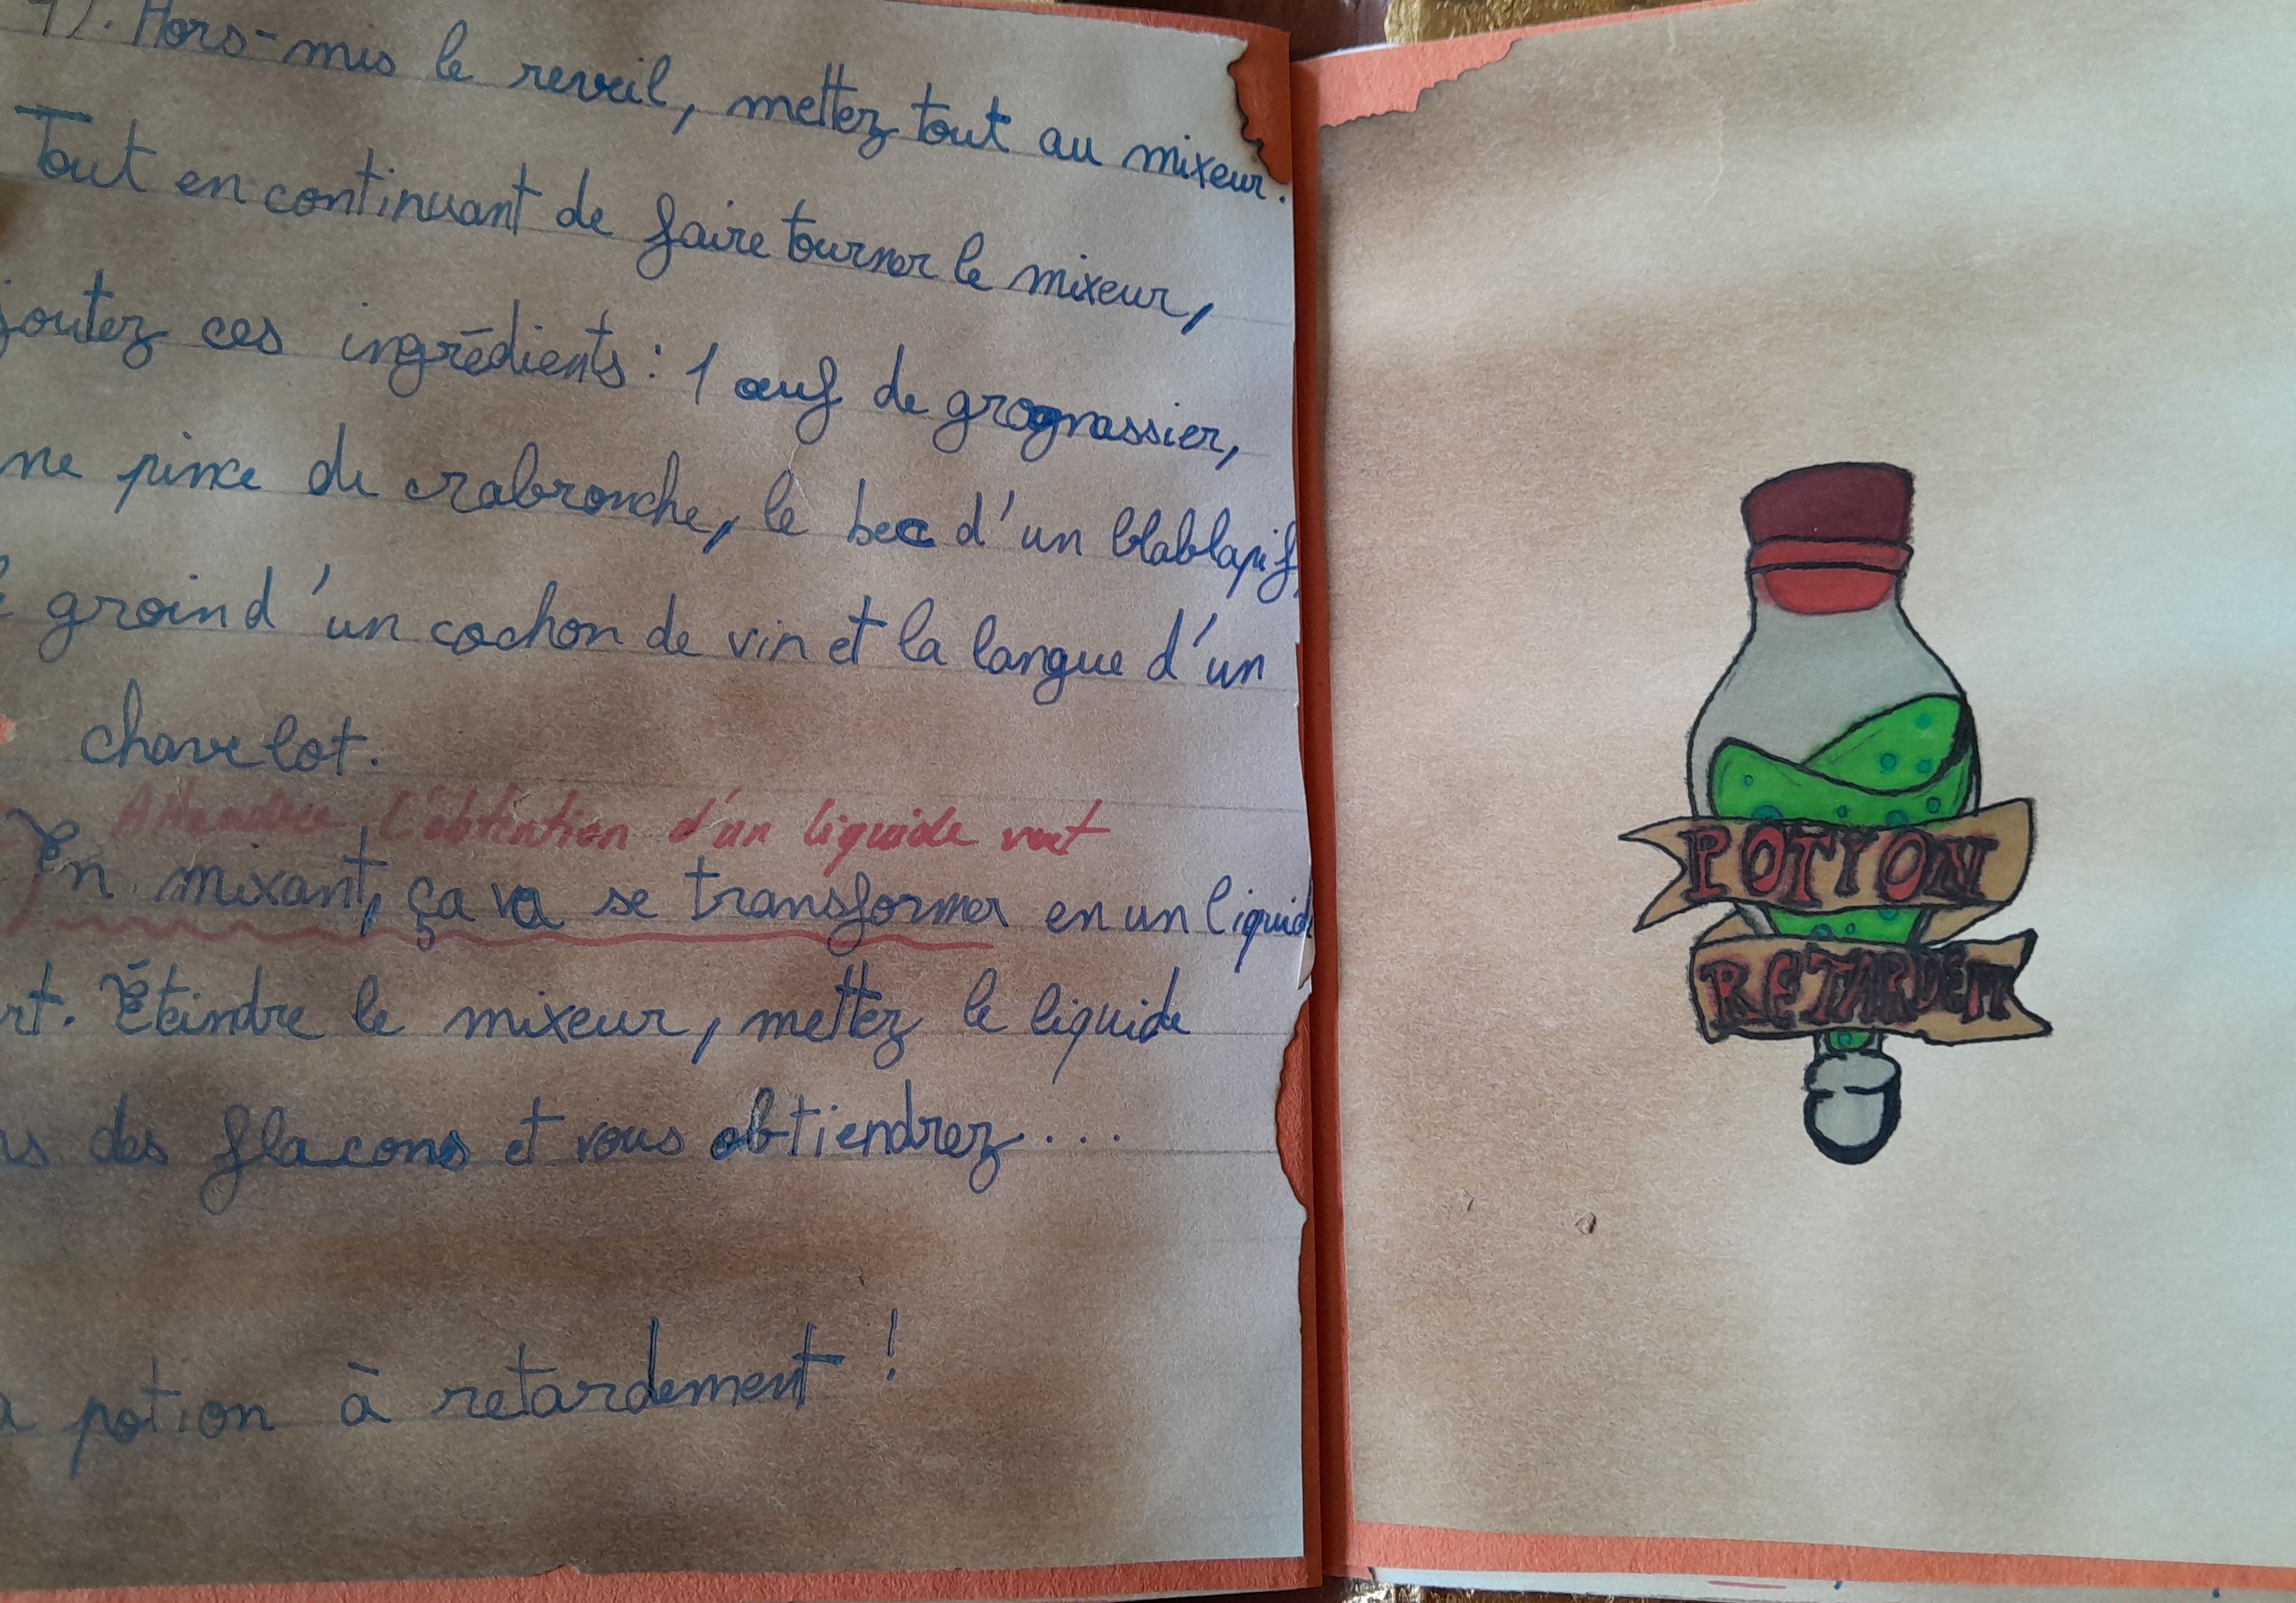 ). Hors-mis le reveil, mettez tout au mixeur.
Tout en continuant de faire tourner le mixeur,
joutez ces ingrédients : 1 œuf de grognassier,
ne pince de crabronche, le bec d'un blablapif,
groin d'un cochon de vin et la langue d'un
chavelot.
Attendre l'obtention d'un liquide vert
En mixant, ça va se transformer en un liquid
rt. Éteindre le mixeur, mettez le liquide
ns des flacons et vous obtiendrez...
potion à retardement !
POTION
RETARDEMT